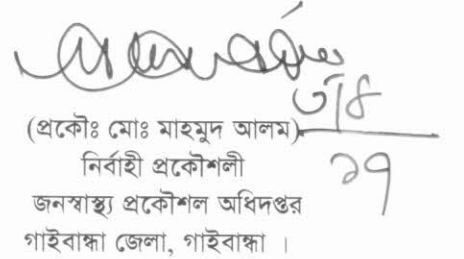 ৩/৪
(প্রকৌঃ মোঃ মাহমুদ আলম)
১৭
নির্বাহী প্রকৌশলী
জনস্বাস্থ্য প্রকৌশল অধিদপ্তর
গাইবান্ধা জেলা, গাইবান্ধা ।